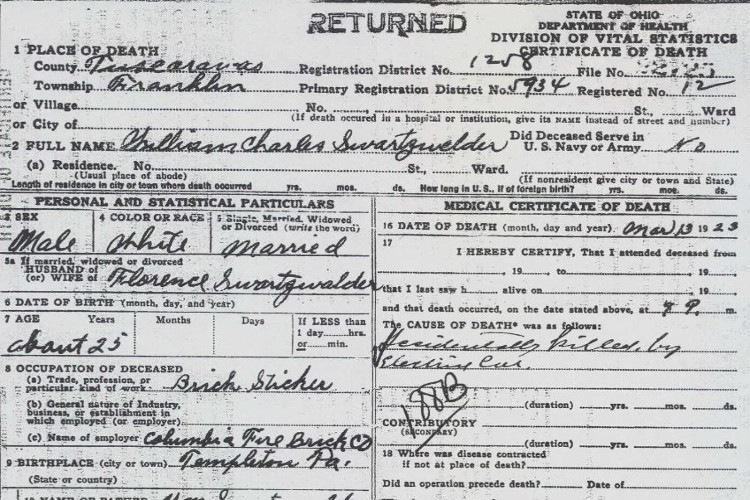 RETURNED
STATE OF OHIO
DEPARTMENT OF HEALTH
DIVISION OF VITAL STATISTICS
CERTIFICATE OF DEATH
1 PLACE OF DEATH
County Tuscarawas Registration District No. 1258 File No.
Township Franklin Primary Registration District No. 5934 Registered No. 12
or Village No. St., Ward
(If death occured in a hospital or institution, give its NAME instead of street and number)
or City of
2 FULL NAME William Charles Swartzwelder Did Deceased Serve in U. S. Navy or Army No
(a) Residence. No. St., Ward.
(Usual place of abode) (If nonresident give city or town and State)
Length of residence in city or town where death occurred yrs. mos. ds. How long in U. S., if of foreign birth? yrs. mos. ds.
PERSONAL AND STATISTICAL PARTICULARS
3 SEX 4 COLOR OR RACE 5 Single, Married, Widowed or Divorced (write the word)
Male White Married
5a If married, widowed or divorced
HUSBAND of
(or) WIFE of Florence Swartzwalder
6 DATE OF BIRTH (month, day, and year)
7 AGE Years Months Days If LESS than
1 day, hrs.
or min.
about 25
8 OCCUPATION OF DECEASED
(a) Trade, profession, or particular kind of work Brick Sticker
(b) General nature of Industry, business, or establishment in which employed (or employer)
(c) Name of employer Columbia Fire Brick Co
9 BIRTHPLACE (city or town) Templeton Pa.
(State or country)
MEDICAL CERTIFICATE OF DEATH
16 DATE OF DEATH (month, day and year) Mar 13 1923
17
I HEREBY CERTIFY, That I attended deceased from
, 19 to , 19
that I last saw h alive on , 19
and that death occurred, on the date stated above, at P. m.
The CAUSE OF DEATH* was as follows:
Accidentally killed by
Car.
188B
(duration) yrs. mos. ds.
CONTRIBUTORY
(SECONDARY)
(duration) yrs. mos. ds.
18 Where was disease contracted
if not at place of death?
Did an operation precede death? Date of